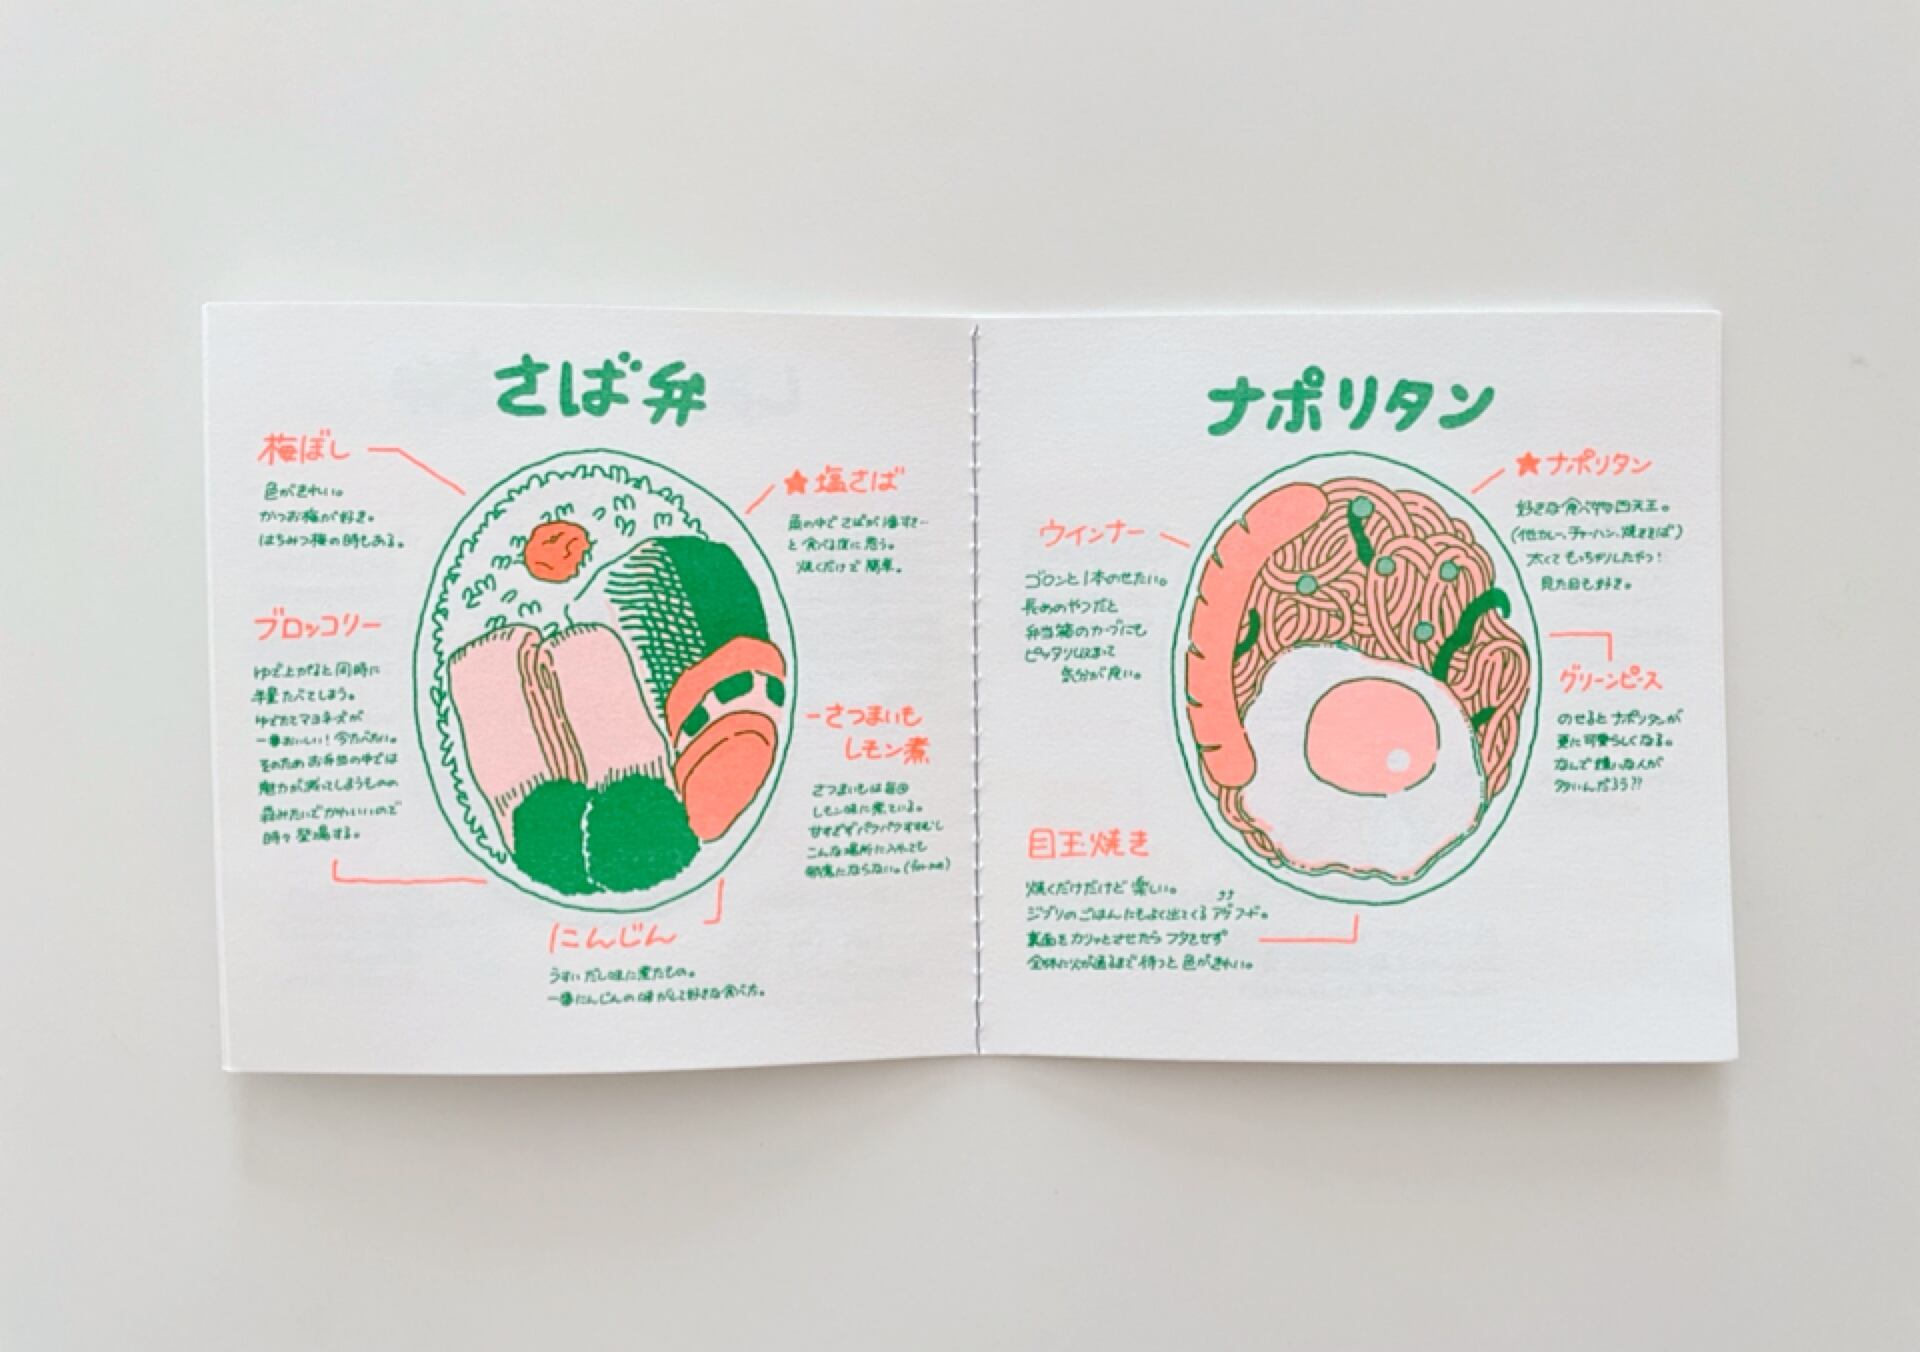 さば弁
梅ぼし
色がきれい。
かつお梅が好き。
はちみつ梅の時もある。
★塩さば
魚の中でさばが1番すきー
と食べる度に思う。
焼くだけで簡単。
ブロッコリー
ゆで上がると同時に
半量たべてしまう。
ゆでたてマヨネズが
一番おいしい!今たべたい。
そのためお弁当の中では
魅力が減ってしまうものの
森みたいでかわいいので
時々登場する。
さつまいも
レモン煮
さつまいもは毎回
レモン味に煮ている。
甘すぎずパクパクすすむし
こんな場所に入れても
邪魔にならない。(for me)
にんじん
うすいだし味に煮たもの。
一番にんじんの味がして好きな食べ方。
ナポリタン
★ナポリタン
好きな食べ物四天王。
(他カレー、チャーハン、焼きそば)
太くてもっちりしたやつ!
見た目も好き。
ウインナー
ゴロンと1本のせたい。
長めのやつだと
弁当箱のカーブにも
ピッタリ収まって
気分が良い。
グリーンピース
のせるとナポリタンが
更に可愛らしくなる。
なんで嫌いな人が
多いんだろう??
目玉焼き
焼くだけだけど楽しい。
ジブリのごはんにもよく出てくるアゲフード。
裏面をカリッとさせたらフタをせず
全体に火が通るまで待つと色がきれい。